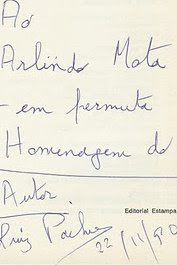 Ao
Arlindo Mota
- em permuta
Homenagem do
Autor.
Editorial Estampa
Luiz Pacheco
22/11/80